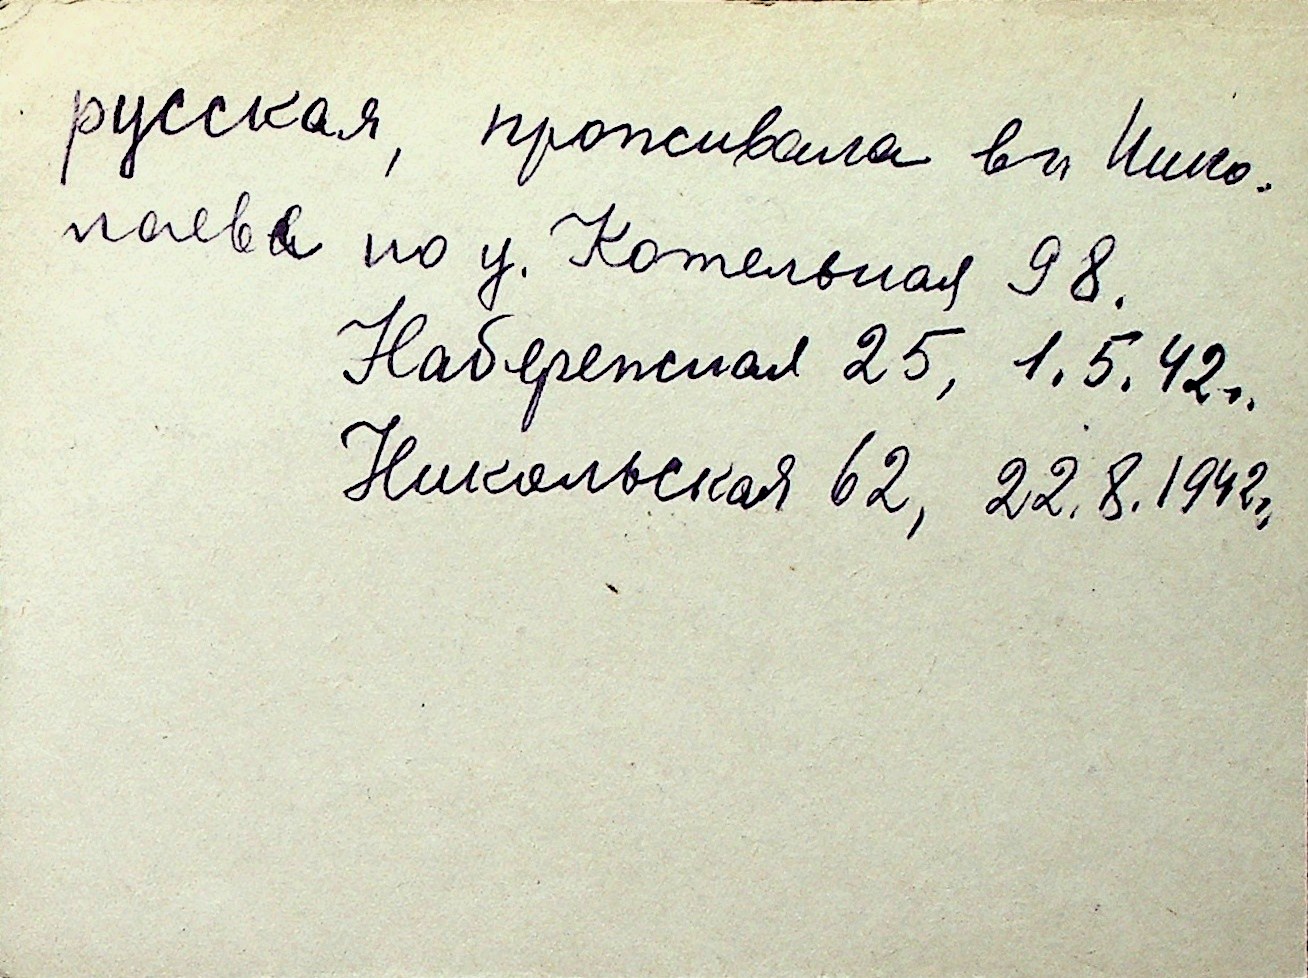 русская, проживала в г. Нико-
лаеве по у. Котельная 98.
Набережная 25, 1.5.42г.
Никольская 62, 22.8.1942г.